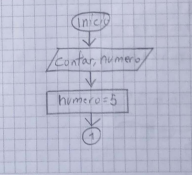 Inicio
contar, numero
numero=5
1